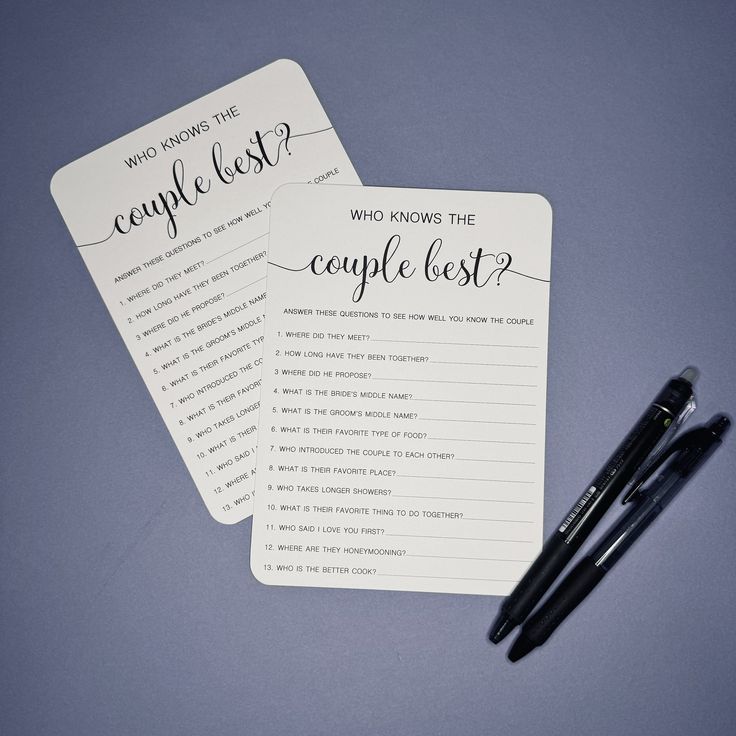 WHO KNOWS THE
couple best?
ANSWER THESE QUESTIONS TO SEE HOW WELL YOU KNOW THE COUPLE
1. WHERE DID THEY MEET?
2. HOW LONG HAVE THEY BEEN TOGETHER?
3 WHERE DID HE PROPOSE?
4. WHAT IS THE BRIDE'S MIDDLE NAME?
5. WHAT IS THE GROOM'S MIDDLE NAME
6. WHAT IS THEIR FAVORITE TYPE
7. WHO INTRODUCED THE
8. WHAT IS THEIR FAVORITE
9. WHO TAKES LONGER
10. WHAT IS THEIR
11. WHO SAID I
12. WHERE
13.
WHO KNOWS THE
couple best?
ANSWER THESE QUESTIONS TO SEE HOW WELL YOU KNOW THE COUPLE
1. WHERE DID THEY MEET?
2. HOW LONG HAVE THEY BEEN TOGETHER?
3 WHERE DID HE PROPOSE?
4. WHAT IS THE BRIDE'S MIDDLE NAME?
5. WHAT IS THE GROOM'S MIDDLE NAME?
6. WHAT IS THEIR FAVORITE TYPE OF FOOD?
7. WHO INTRODUCED THE COUPLE TO EACH OTHER?
8. WHAT IS THEIR FAVORITE PLACE?
9. WHO TAKES LONGER SHOWERS?
10. WHAT IS THEIR FAVORITE THING TO DO TOGETHER?
11. WHO SAID I LOVE YOU FIRST?
12. WHERE ARE THEY HONEYMOONING?
13. WHO IS THE BETTER COOK?